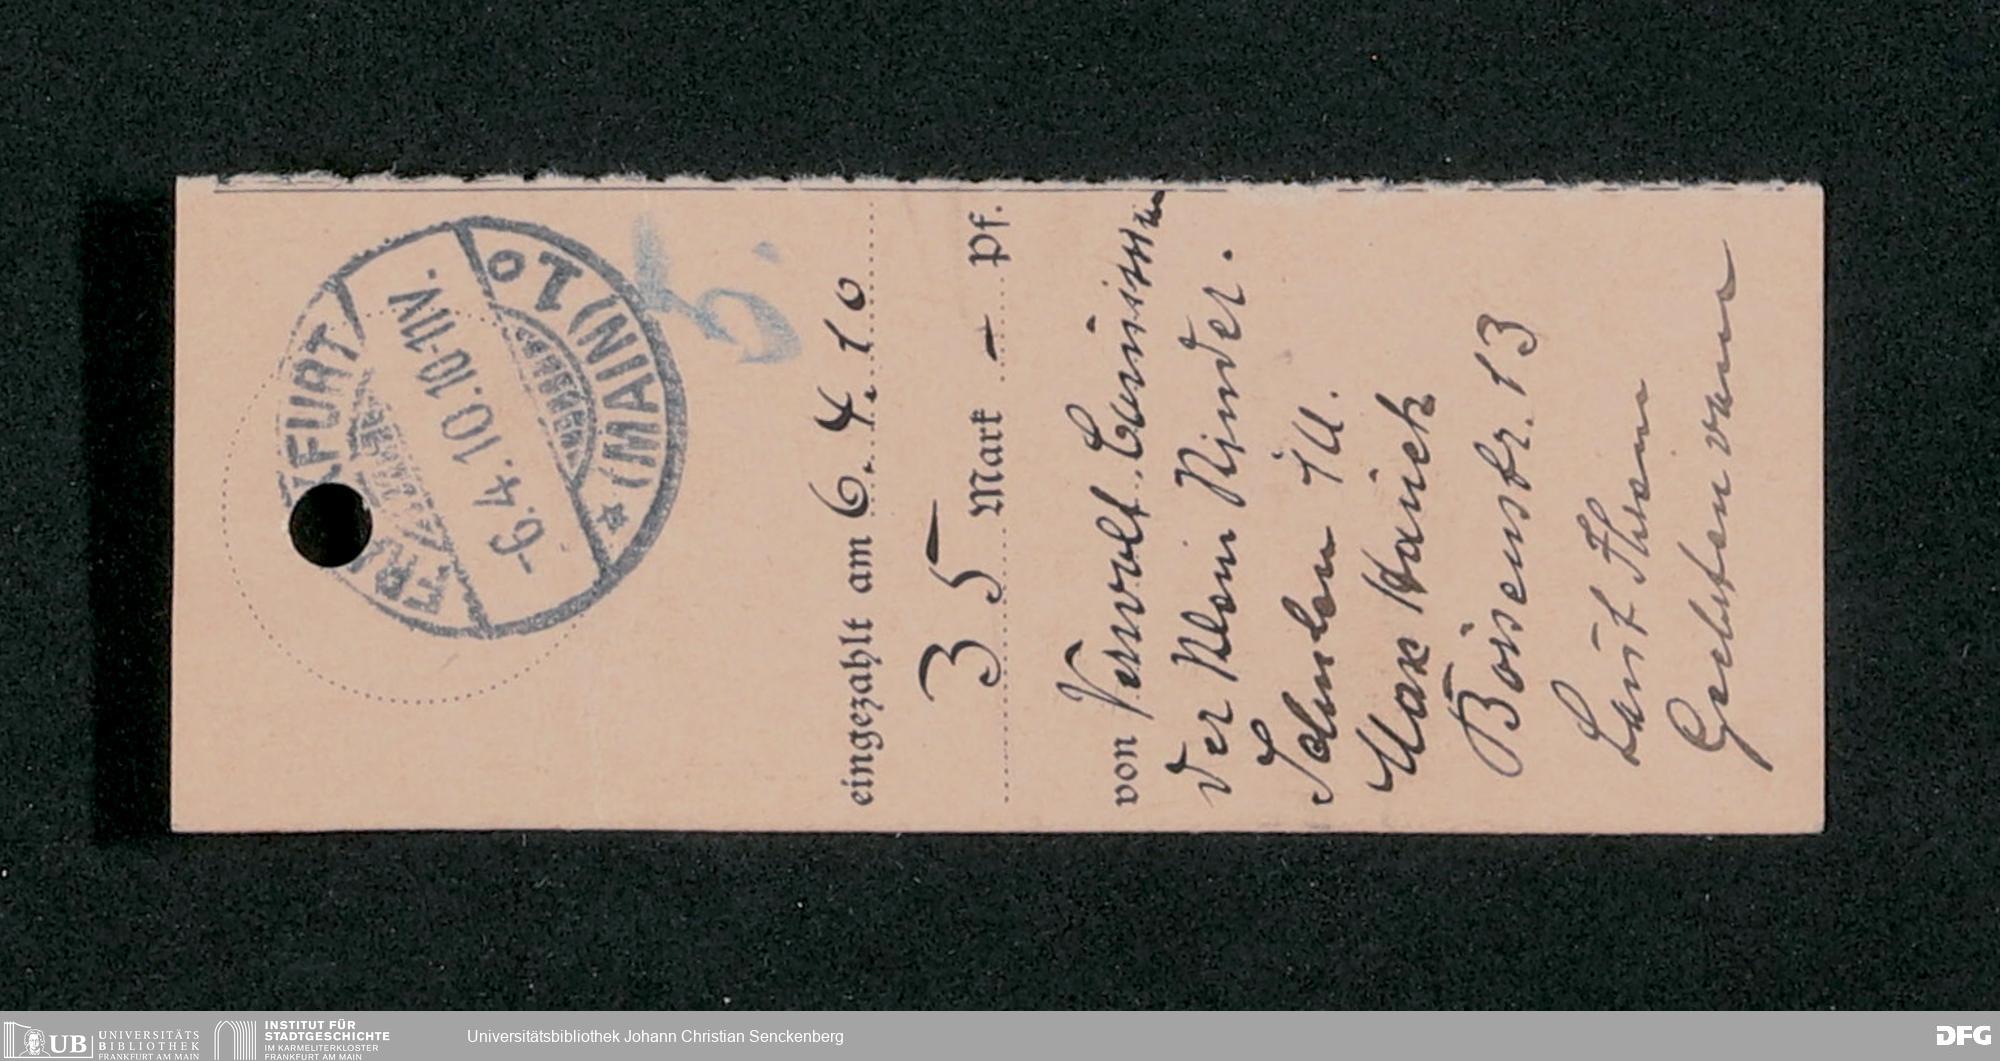 FRANKFURT
(MAIN) 1 o
-6.4.10.10-11V.
5.
eingezahlt am 6. 4. 10
35 Mark — Pf.
von Verwalt. Commission
der Klein Kinder.
Schulen ZU.
Max Hauck
Börsenstr. 13
Laut Ihrem
UB UNIVERSITÄTS
BIBLIOTHEK
FRANKFURT AM MAIN
INSTITUT FÜR
STADTGESCHICHTE
IM KARMELITERKLOSTER
FRANKFURT AM MAIN
Universitätsbibliothek Johann Christian Senckenberg
DFG